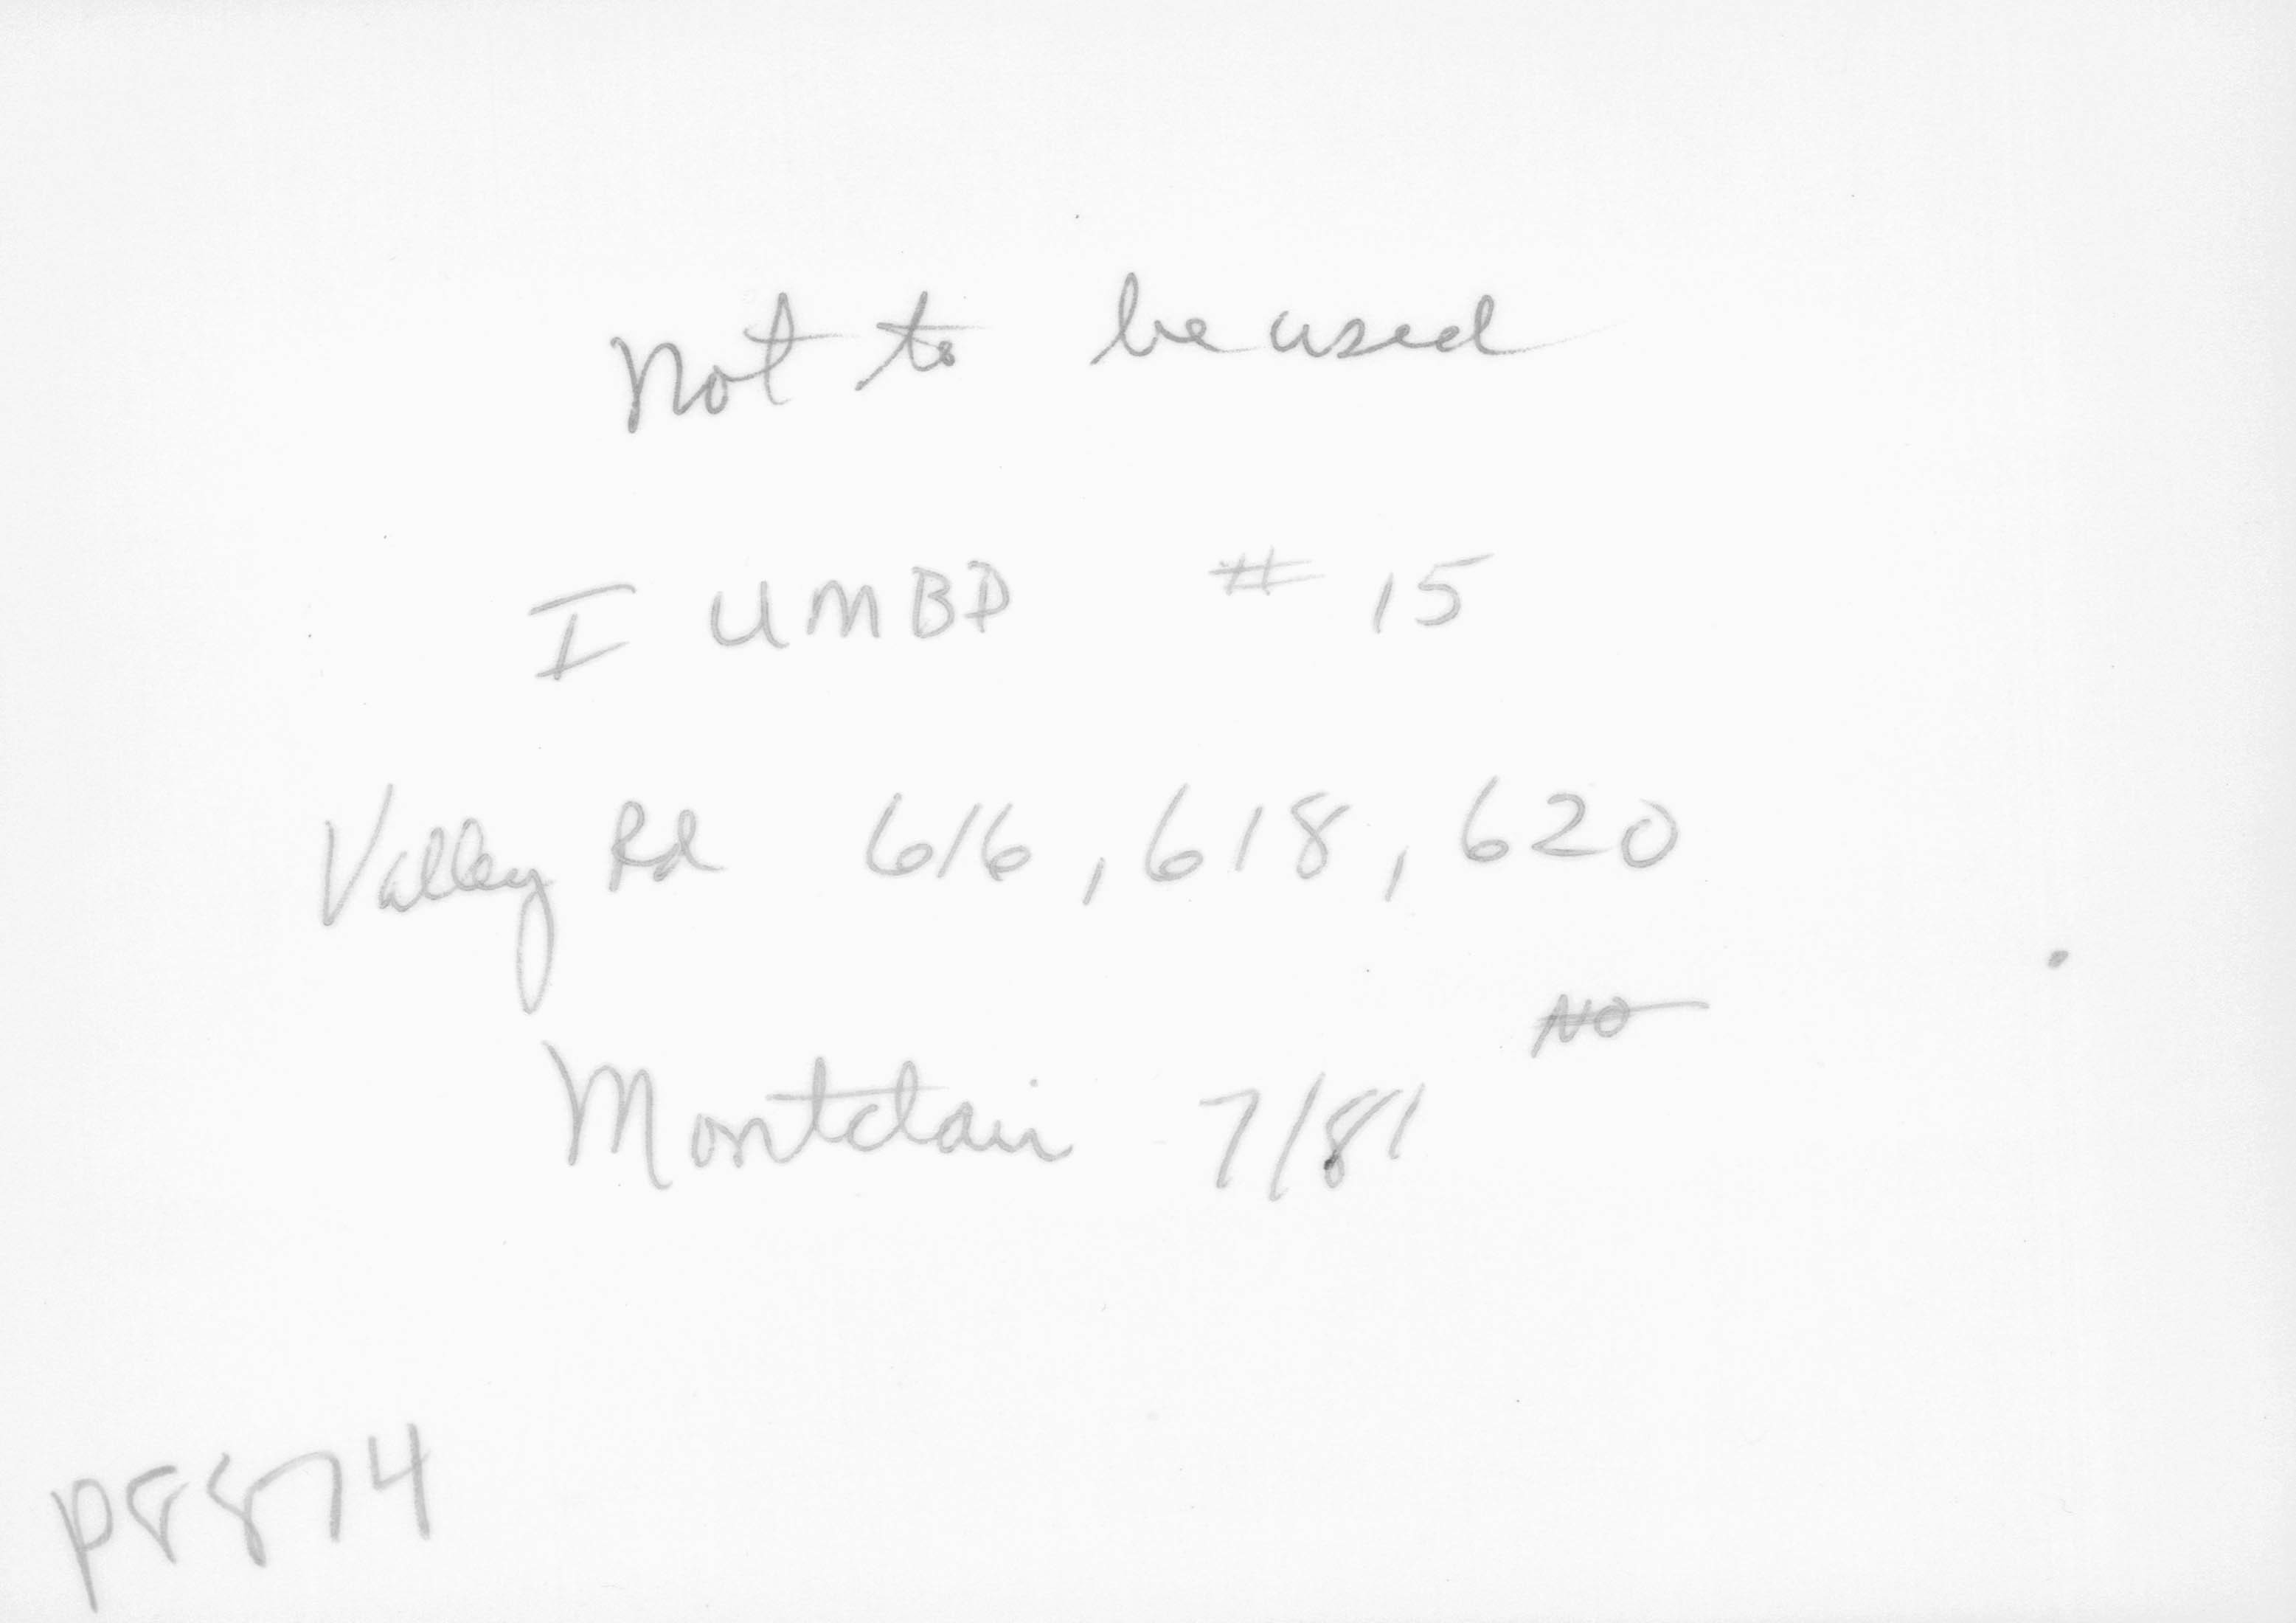 Not to be used
I UMBD # 15
Valley Rd 616, 618, 620
NO
Montclair 7/81
P8874